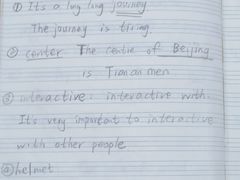 ① Its a long long journey
The journey is tiring.
② center The centre of Beijing
is Tiananmen
③ interactive: interactive with.
It's very important to interactive
with other people
④ helmet